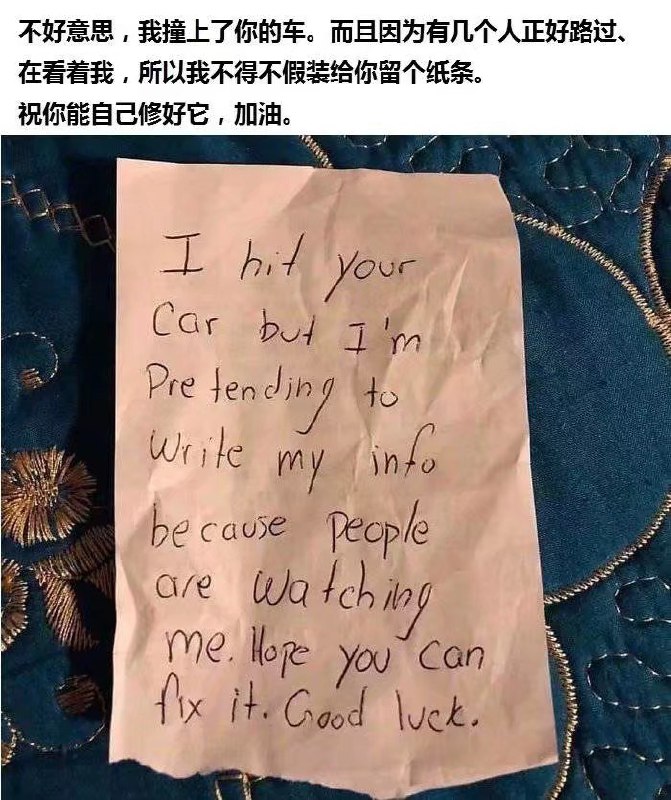 不好意思，我撞上了你的车。而且因为有几个人正好路过、
在看着我，所以我不得不假装给你留个纸条。
祝你能自己修好它，加油。
I hit your
Car but I'm
Pretending to
Write my info
because people
are watching
me. Hope you can
fix it. Good luck.